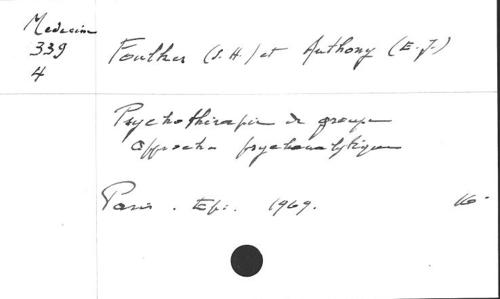 Medecine
339
4
Foulkes (S.H.) et Anthony (E.J.)
Psychothérapie de groupe
Approche psychanalytique
Paris. Epi. 1969. 16°